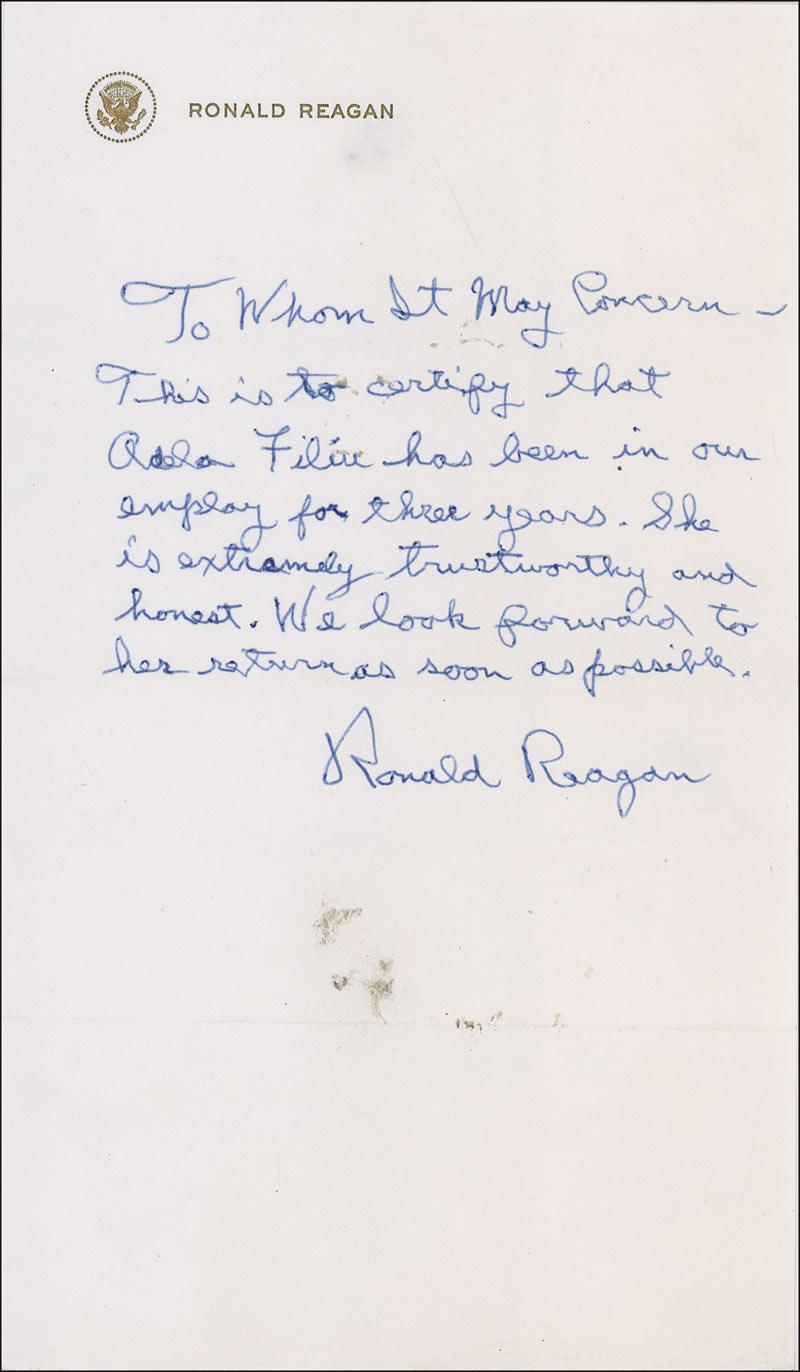 RONALD REAGAN
To Whom It May Concern –
This is to certify that
Adela Filiu has been in our
employ for three years. She
is extramely trustworthy and
honest. We look forward to
her return as soon as possible.
Ronald Reagan